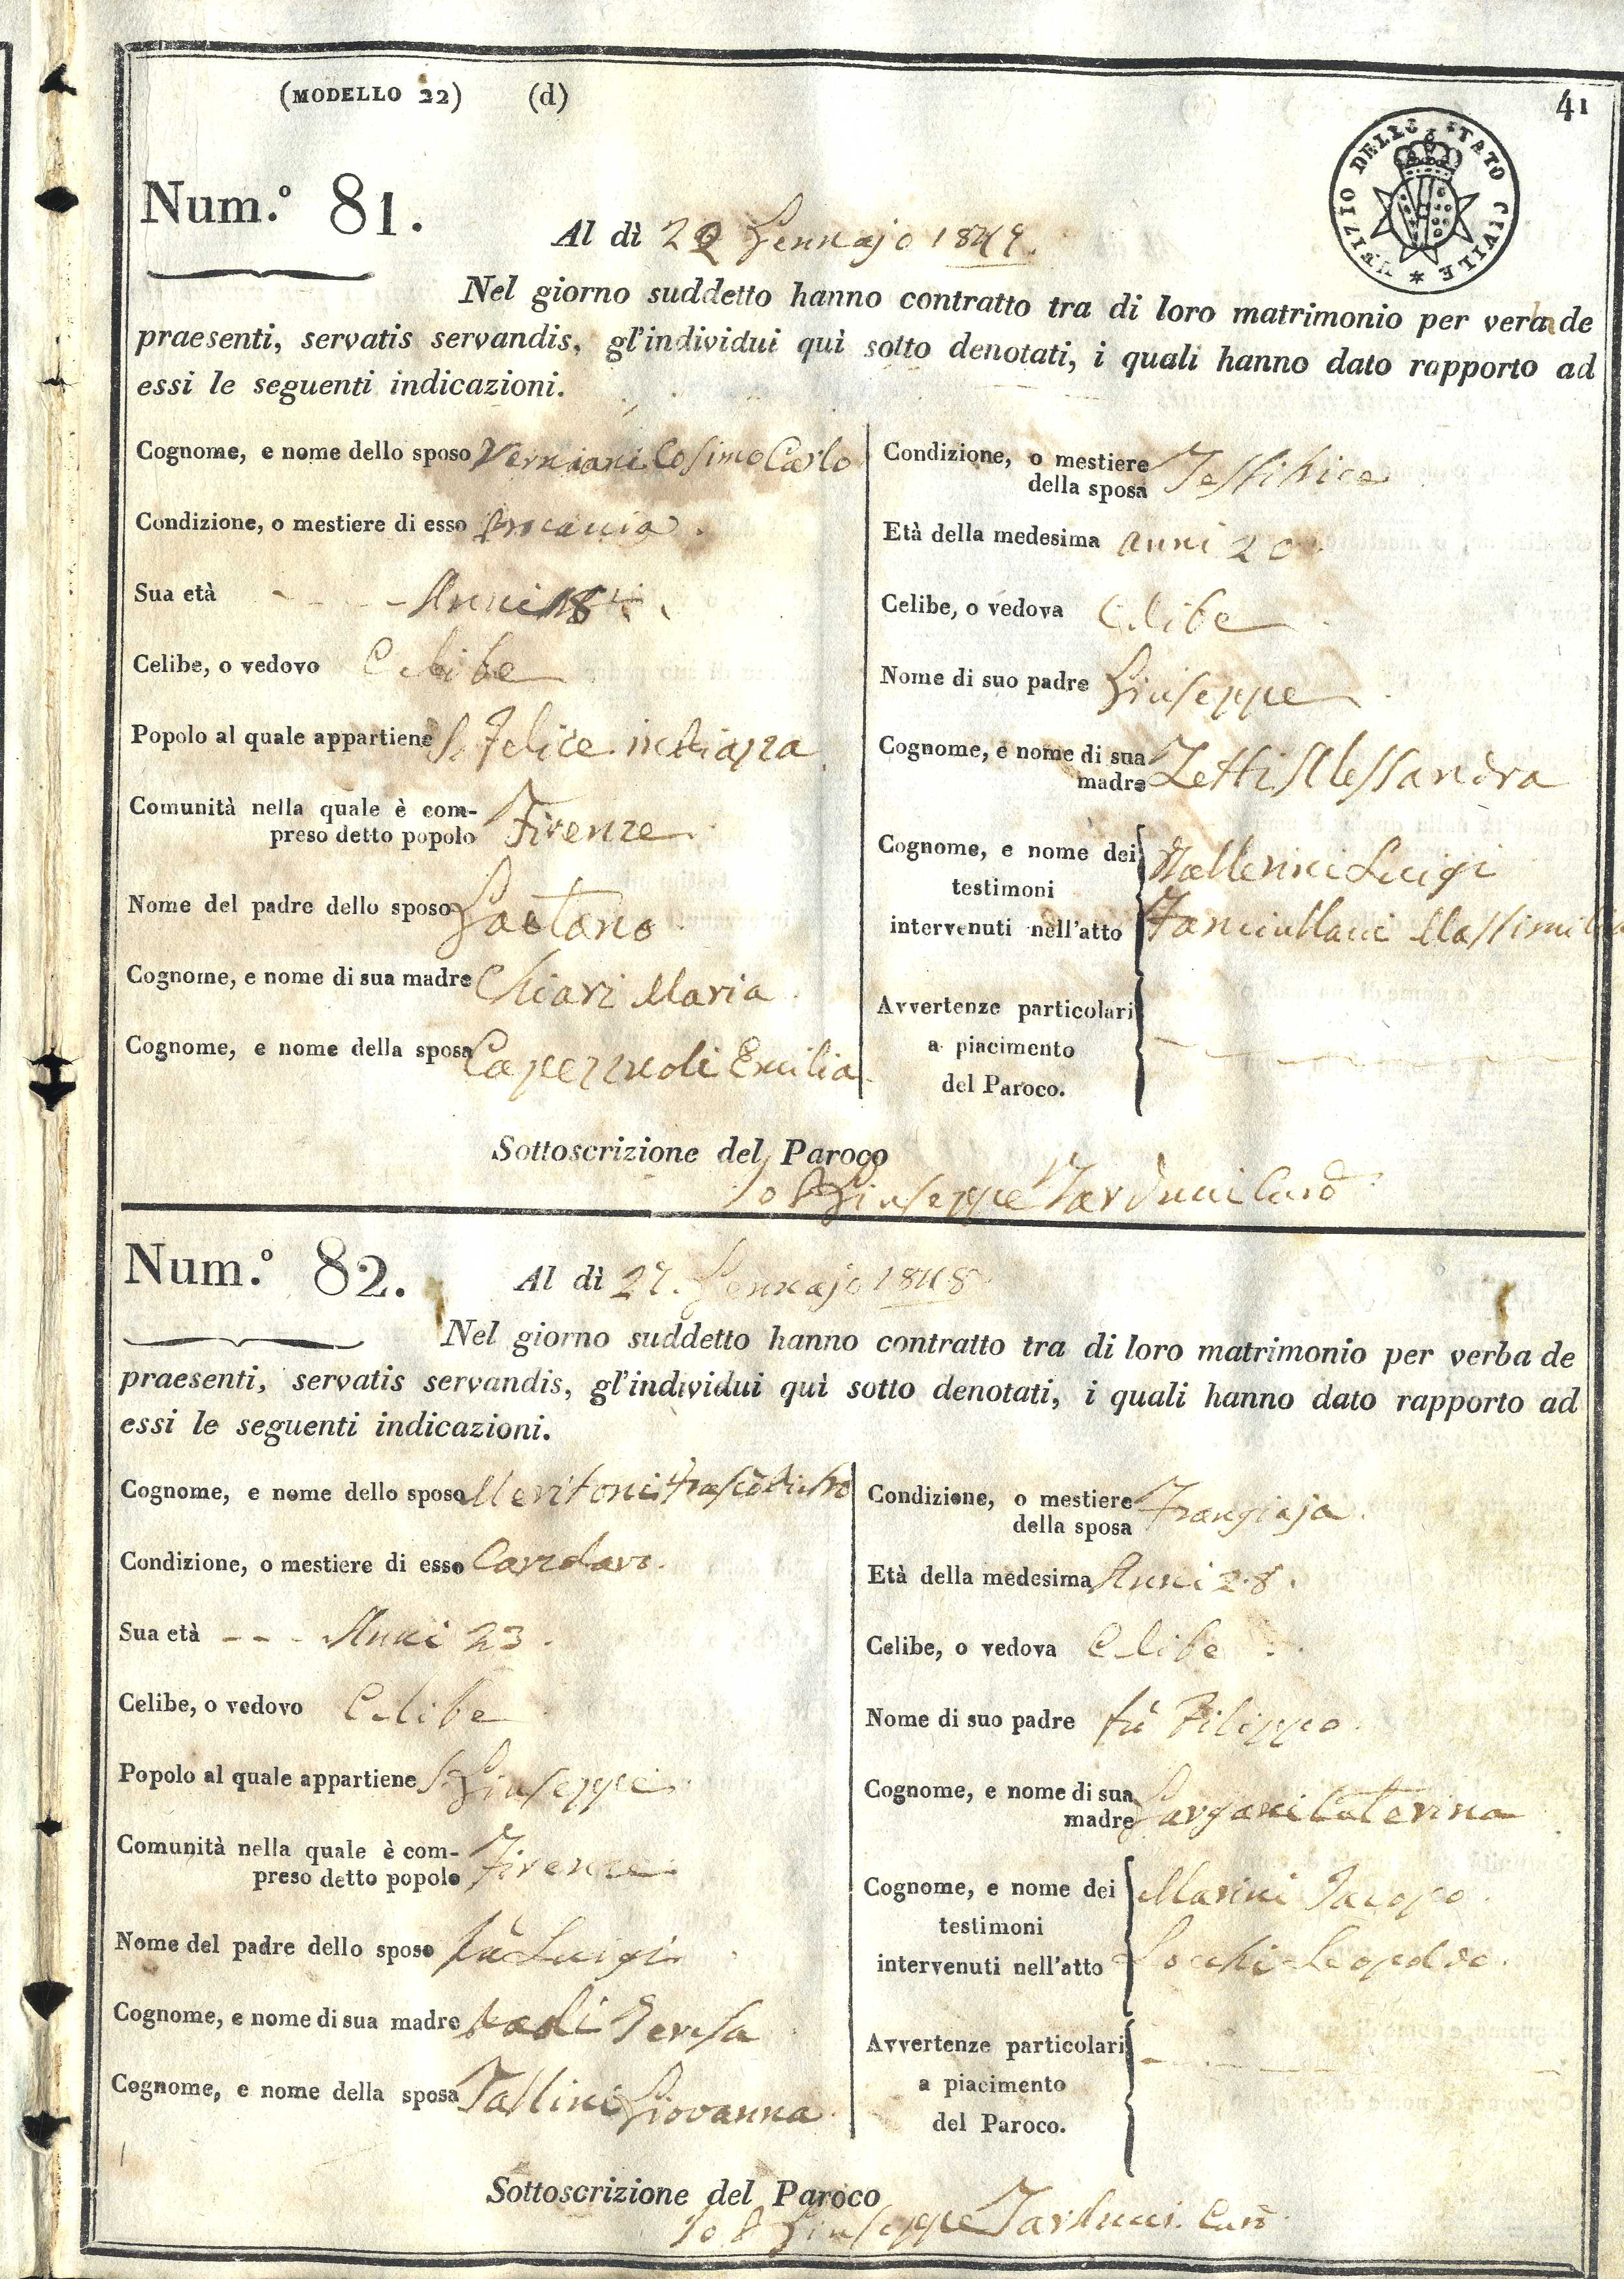 (MODELLO 22) (d)
41
UFIZIO DELLO STATO CIVILE *
Num.° 81.
Al dì 22 Gennajo 1849.
Nel giorno suddetto hanno contratto tra di loro matrimonio per verba de
praesenti, servatis servandis, gl'individui quì sotto denotati, i quali hanno dato rapporto ad
essi le seguenti indicazioni.
Cognome, e nome dello sposo Verniani Cosimo Carlo
Condizione, o mestiere di esso Procaccia.
Sua età - - - Anni
Celibe, o vedovo Celibe
Popolo al quale appartiene S. Felice in Piazza
Comunità nella quale è com-
preso detto popolo Firenze.
Nome del padre dello sposo Gaetano
Cognome, e nome di sua madre Chiari Maria
Cognome, e nome della sposa Capezzuoli Emilia
Condizione, o mestiere
della sposa Tessitrice
Età della medesima anni 20.
Celibe, o vedova Celibe
Nome di suo padre Giuseppe
Cognome, e nome di sua
madre Zetti Alessandra
Cognome, e nome dei
testimoni
intervenuti nell'atto
Luigi
Fanciullacci
Avvertenze particolari
a piacimento
del Paroco.
Sottoscrizione del Paroco
Io P. Giuseppe Tarducci Curo
Num.° 82.
Al dì 27. Gennajo 1848
Nel giorno suddetto hanno contratto tra di loro matrimonio per verba de
praesenti, servatis servandis, gl'individui quì sotto denotati, i quali hanno dato rapporto ad
essi le seguenti indicazioni.
Cognome, e nome dello sposo
Condizione, o mestiere di esso
Sua età - - - Anni 23.
Celibe, o vedovo Celibe
Popolo al quale appartiene S. Giuseppe
Comunità nella quale è com-
preso detto popolo Firenze.
Nome del padre dello sposo fù Luigi
Cognome, e nome di sua madre Teresa
Cognome, e nome della sposa Tallini Giovanna
Condizione, o mestiere
della sposa Frangiaja.
Età della medesima Anni 28.
Celibe, o vedova Celibe
Nome di suo padre fù Filippo.
Cognome, e nome di sua
madre Gargani Caterina
Cognome, e nome dei
testimoni
intervenuti nell'atto
Marini Jacopo.
Leopoldo.
Avvertenze particolari
a piacimento
del Paroco.
Sottoscrizione del Paroco
Io P. Giuseppe Tarducci. Curo